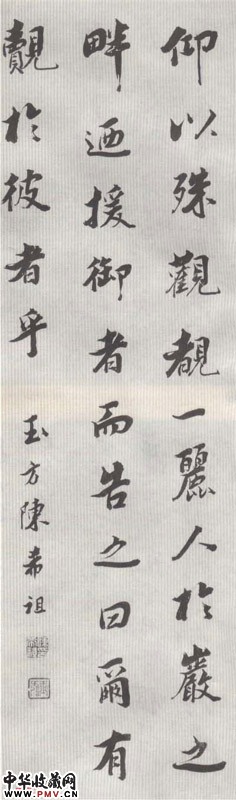 仰以殊觀覩一麗人於巖之
畔迺援御者而告之曰爾有
覿於彼者乎
玉方陳希祖
中华收藏网
WWW.PMV.CN